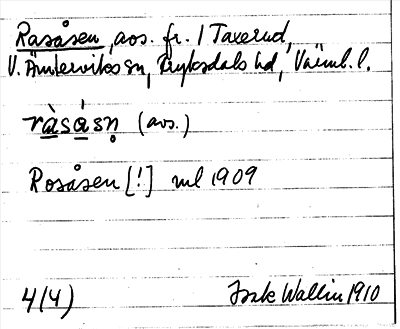 Rasåsen, avs. fr. 1 Taxerud,
V. Ämterviks sn, Fryksdals hd, Värml. l.
ràsásn̥ (avs.)
Rosåsen [!] ml 1909
4(4)
Isak Wallin 1910